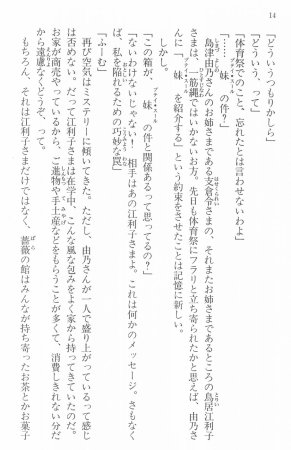 14
「どういうつもりかしら」
「どういう、って」
「体育祭でのこと、忘れたとは言わせないわよ」
「妹の件?」
島津由乃さんのお姉さまである支倉令さまの、それまたお姉さまであるところの鳥居江利子
さまは、一筋縄ではいかないお方。先日も体育祭にフラリと立ち寄られたかと思えば、由乃さ
んに「妹を紹介する」という約束をさせたことは記憶に新しい。
しかし。
「この箱が、妹の件と関係あるって思ってるの?」
「ないわけないじゃない! 相手はあの江利子さまよ。これは何かのメッセージ。さもなく
ば、私を陥れるための巧妙な罠」
「ふーむ」
再び空気はミステリーに傾いてきた。ただし、由乃さんが一人で盛り上がっているって感じ
は否めない。だって江利子さまは在学中、こんな風な包みをよく家から持ってきていたのだ。
お家が商売やっているから、ご進物や手土産などをもらうことが多くて、消費しきれない分だ
から遠慮なくどうぞ、って。
もちろん、それは江利子さまだけではなく、薔薇の館はみんなが持ち寄ったお茶とかお菓子